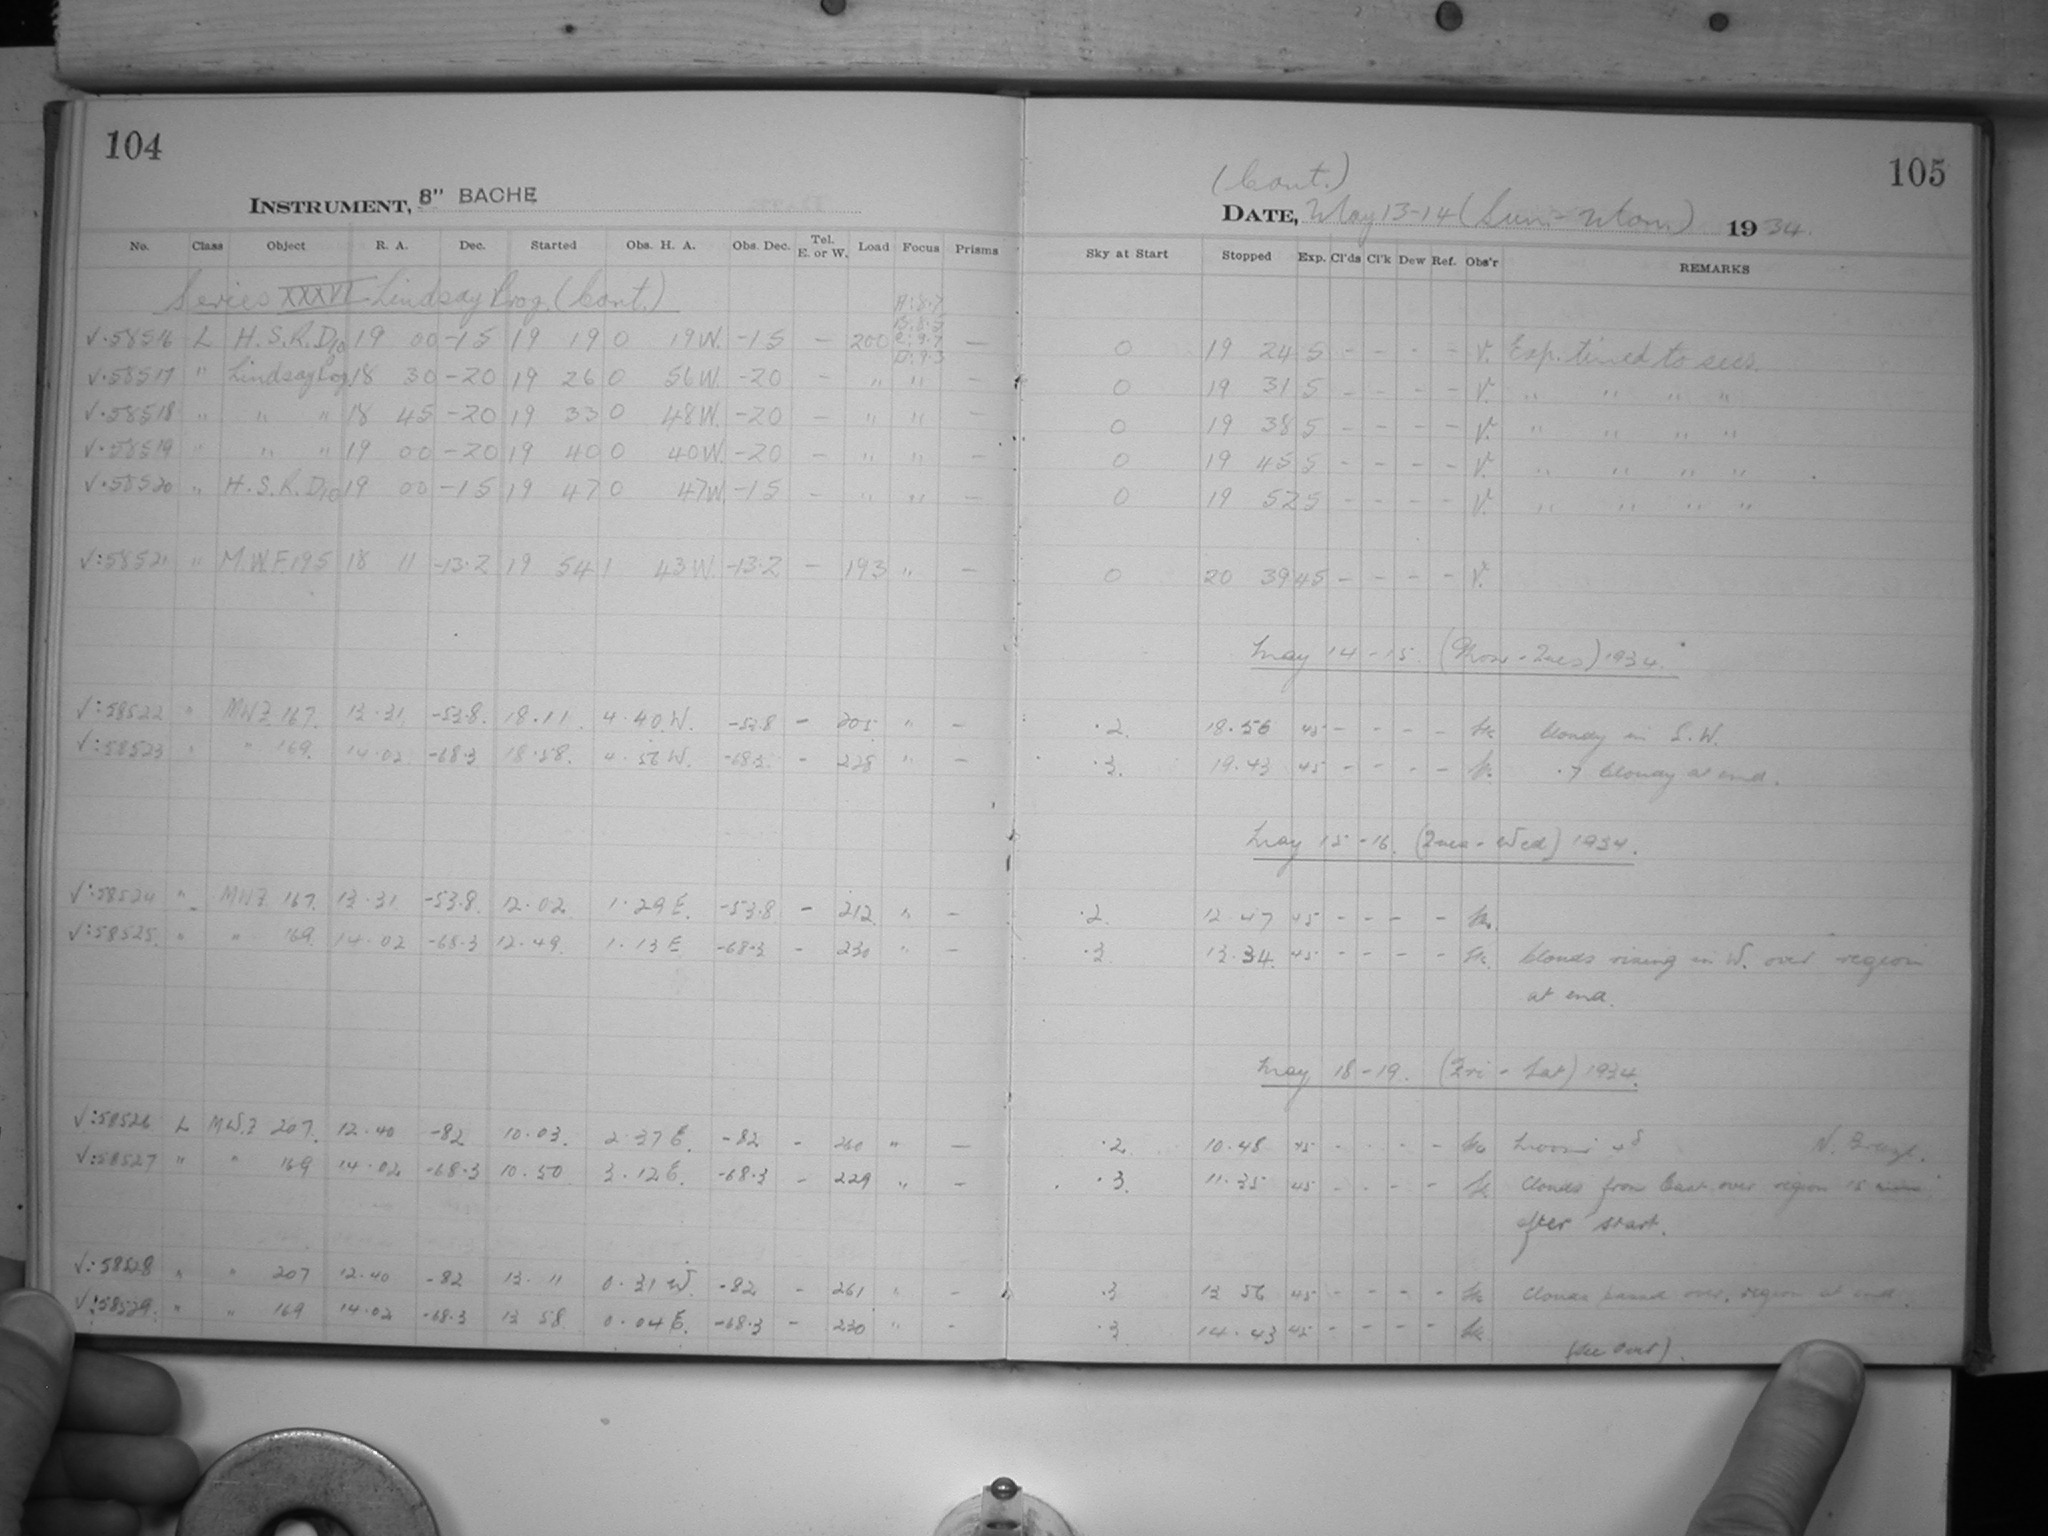 104
INSTRUMENT, 8" BACHE
No. Class Object R. A. Dec. Started Obs. H. A. Obs. Dec. Tel. E. or W. Load Focus Prisms
Series XXXVI Lindsay Prog. (Cont.)
A: 8.7
B: 8.5
C: 9.7
D: 9.3
√.58516 L H.S.R.D10 19 00 -15 19 19 0 19W. -15 - 200 -
√.58517 " Lindsay Prog. 18 30 -20 19 26 0 56W. -20 - " " -
√.58518 " " " 18 45 -20 19 33 0 48W. -20 - " " -
√.58519 " " " 19 00 -20 19 40 0 40W. -20 - " " -
√.58520 " H.S.R.D10 19 00 -15 19 47 0 47W. -15 - " " -
√:58521 " M.W.F.195 18 11 -13.2 19 54 1 43W. -13.2 - 193 " -
√:58522 " MWF 167. 13.31. -53.8. 18.11. 4.40.W. -53.8 - 205 " -
√:58523 " " 169. 14.02 -68.3 18.58. 4.56W. -68.3 - 228 " -
√:58524 " MWF 167. 13.31 -53.8. 12.02. 1.29E. -53.8 - 212. " -
√:58525. " " 169. 14.02 -68.3 12.49. 1.13E -68.3 - 230 " -
√:58526 L MW.F 207. 12.40 -82 10.03. 2.37E. -82 - 260 " -
√:58527 " " 169 14.02 -68.3 10.50 3.12E. -68.3 - 229 " -
√:58528 " " 207 12.40 -82 13.11 0.31W. -82 - 261 " -
√:58529. " " 169 14.02 -68.3 13 58 0.04E. -68.3 - 230 " -
105
(Cont.)
DATE, May 13-14 (Sun-Mon) 1934.
Sky at Start Stopped Exp. Cl'ds Cl'k Dew Ref. Obs'r REMARKS
0 19 24 5 - - - - V. Exp. timed to secs.
0 19 31 5 - - - - V. " " " "
0 19 38 5 - - - - V. " " " "
0 19 45 5 - - - - V. " " " "
0 19 52 5 - - - - V. " " " "
0 20 39 45 - - - - V.
May 14-15. (Mon-Tues) 1934.
.2. 18.56 45 - - - - Cloudy in S.W.
.3. 19.43 45 - - - - .7 cloudy at end.
May 15-16. (Tues-Wed) 1934.
.2. 12.47 45 - - - -
.3. 13.34. 45 - - - - Clouds rising in W. over region
at end.
May 18-19. (Fri-Sat) 1934.
.2. 10.48 45 - - - - N.
.3. 11.35 45 - - - - Clouds from East over region 15 mins
after start.
.3 13 56 45 - - - - Clouds passed over region at end.
.3 14.43 45 - - - -
(See Over).